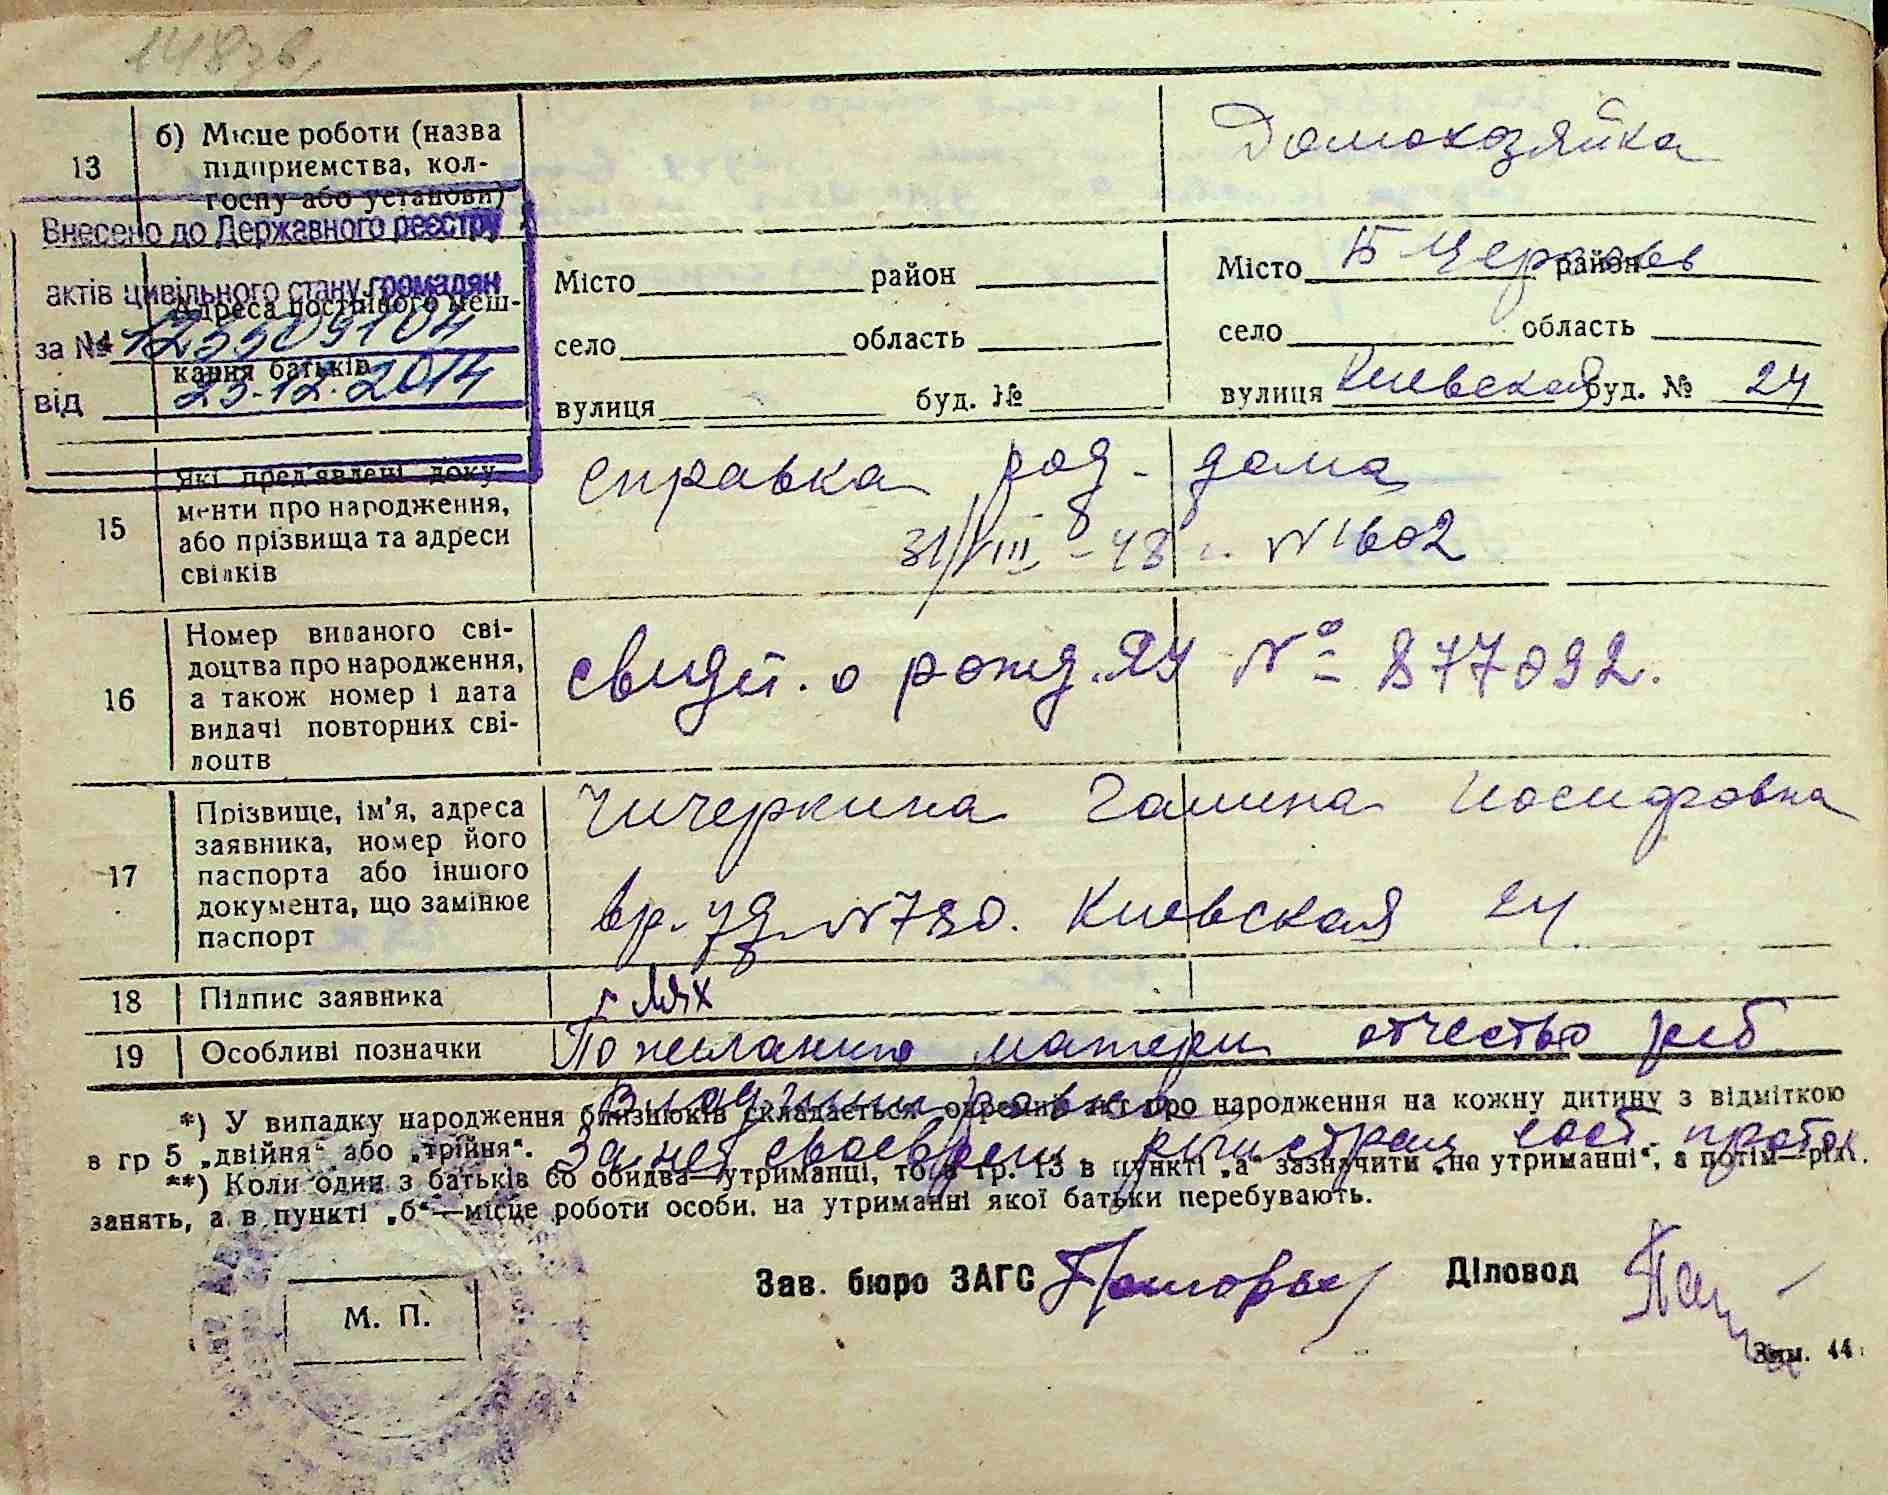 148зв
13 б) Місце роботи (назва
підприємства, кол-
госпу або установи)
Домохозяйка
Внесено до Державного реєстру
актів цивільного стану громадян
за №
від 23.12.2014
Адреса постійного меш-
кання батьків
Місто район
село область
вулиця буд. №
Місто Б район
село область
вулиця Киевская буд. № 24
15 Які пред'явлені доку-
менти про народження,
або прізвища та адреси
свідків
справка род-дома
31/VIII-48 г. N 1602
16 Номер виданого сві-
доцтва про народження,
а також номер і дата
видачі повторних сві-
доцтв
свидет. о рожд. ЯЧ № 877092.
17 Прізвище, ім'я, адреса
заявника, номер його
паспорта або іншого
документа, що замінює
паспорт
Чичеркина Галина Иосифовна
вр. уд. N 780. Киевская 24
18 Підпис заявника
19 Особливі позначки По желанию матери отчество реб
Владимировна
За не своеврем регистрац сост. проток
*) У випадку народження близнюків складається окремий акт про народження на кожну дитину з відміткою
в гр 5 „двійня“ або „трійня“.
**) Коли один з батьків бо обидва—утриманці, то в гр. 13 в пункті „а“ зазначити „на утриманні“, а потім—рід
занять, а в пункті „б“—місце роботи особи, на утриманні якої батьки перебувають.
Зав. бюро ЗАГС Діловод
М. П.
Зам. 44